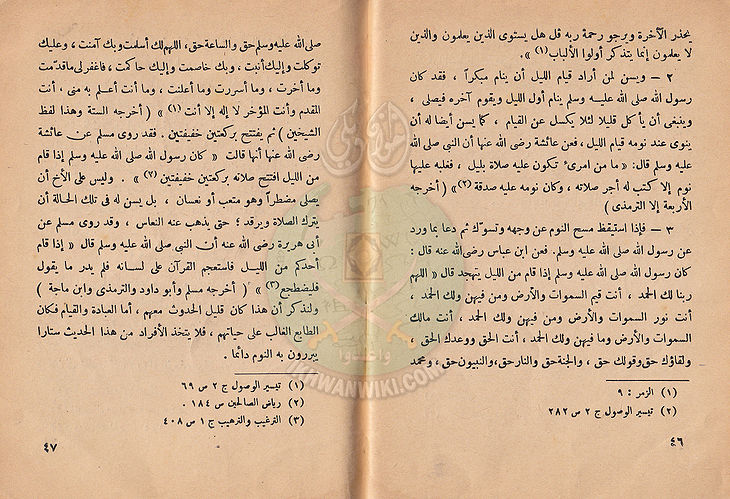 يحذر الآخرة ويرجو رحمة ربه قل هل يستوى الذين يعلمون والذين
لا يعلمون إنما يتذكر أولوا الألباب (١) » .
٢ — ويسن لمن أراد قيام الليل أن ينام مبكراً ، فقد كان
رسول الله صلى الله عليه وسلم ينام أول الليل ويقوم آخره فيصلى ،
وينبغى أن يأكل قليلا لئلا يكسل عن القيام ، كما يسن أيضا له أن
ينوى عند نومه قيام الليل ، فعن عائشة رضى الله عنها أن النبى صلى الله
عليه وسلم قال : « ما من امرئ تكون عليه صلاة بليل ، فغلبه عليها
نوم إلا كتب له أجر صلاته ، وكان نومه عليه صدقة (٢) » ( أخرجه
الأربعة إلا الترمذى )
٣ — فإذا استيقظ مسح النوم عن وجهه وتسوك ثم دعا بما ورد
عن رسول الله صلى الله عليه وسلم. فعن ابن عباس رضى الله عنه قال :
كان رسول الله صلى الله عليه وسلم إذا قام من الليل يتهجد قال « اللهم
ربنا لك الحمد ، أنت قيم السموات والأرض ومن فيهن ولك الحمد ،
أنت نور السموات والأرض ومن فيهن ولك الحمد ، أنت مالك
السموات والأرض وما فيهن ولك الحمد ، أنت الحق ووعدك الحق ،
ولقاؤك حق وقولك حق ، والجنة حق والنار حق ، والنبيون حق ، ومحمد
(١) الزمر : ٩
(٢) تيسير الوصول ج ٢ ص ٢٨٢
٤٦
صلى الله عليه وسلم حق والساعة حق ، اللهم لك أسلمت وبك آمنت ، وعليك
توكلت وإليك أنبت ، وبك خاصمت وإليك حاكمت ، فاغفر لى ما قدمت
وما أخرت ، وما أسررت وما أعلنت ، وما أنت أعلم به منى ، أنت
المقدم وأنت المؤخر لا إله إلا أنت (١) » ( أخرجه الستة وهذا لفظ
الشيخين ) ثم يفتتح بركعتين خفيفتين . فقد روى مسلم عن عائشة
رضى الله عنها أنها قالت « كان رسول الله صلى الله عليه وسلم إذا قام
من الليل افتتح صلاته بركعتين خفيفتين (٢) » . وليس على الأخ أن
يصلى مضطراً وهو متعب أو نعسان ، بل يسن له فى تلك الحالة أن
يترك الصلاة ويرقد ؛ حتى يذهب عنه النعاس ، وقد روى مسلم عن
أبى هريرة رضى الله عنه أن النبى صلى الله عليه وسلم قال « إذا قام
أحدكم من الليل فاستعجم القرآن على لسانه فلم يدر ما يقول
فليضطجع (٣) » ( أخرجه مسلم وأبو داود والترمذى وابن ماجة )
ولنذكر أن هذا كان قليل الحدوث معهم ، أما العبادة والقيام فكان
الطابع الغالب على حياتهم ، فلا يتخذ الأفراد من هذا الحديث ستارا
يبررون به النوم دائما .
(١) تيسير الوصول ج ٢ ص ٦٩
(٢) رياض الصالحين ص ١٨٤ .
(٣) الترغيب والترهيب ج ١ ص ٤٠٨
٤٧
وأعدوا
IKHWANWIKI.COM